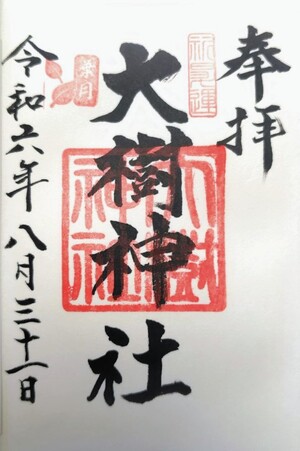 奉拝
大樹神社
令和六年八月三十一日
葉月
大樹神社